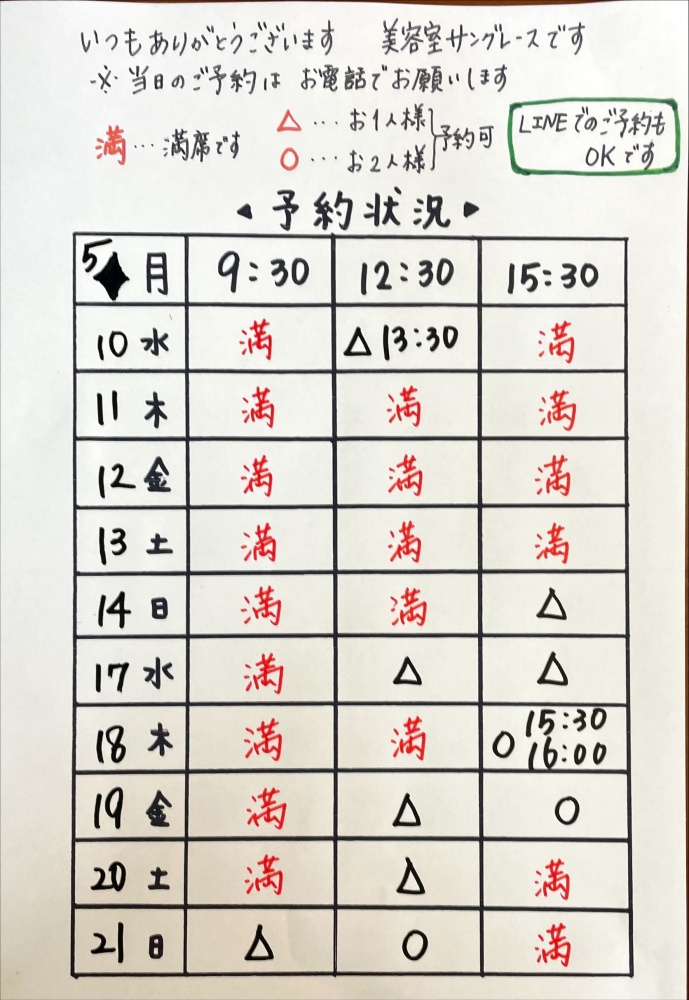 いつもありがとうございます 美容室サングレースです
※ 当日のご予約は お電話でお願いします
満 … 満席です
△ … お1人様
○ … お2人様
予約可
LINEでのご予約も
OKです
◀ 予約状況 ▶
5月 9:30 12:30 15:30
10 水 満 △13:30 満
11 木 満 満 満
12 金 満 満 満
13 土 満 満 満
14 日 満 満 △
17 水 満 △ △
18 木 満 満 ○ 15:30 16:00
19 金 満 △ ○
20 土 満 △ 満
21 日 △ ○ 満